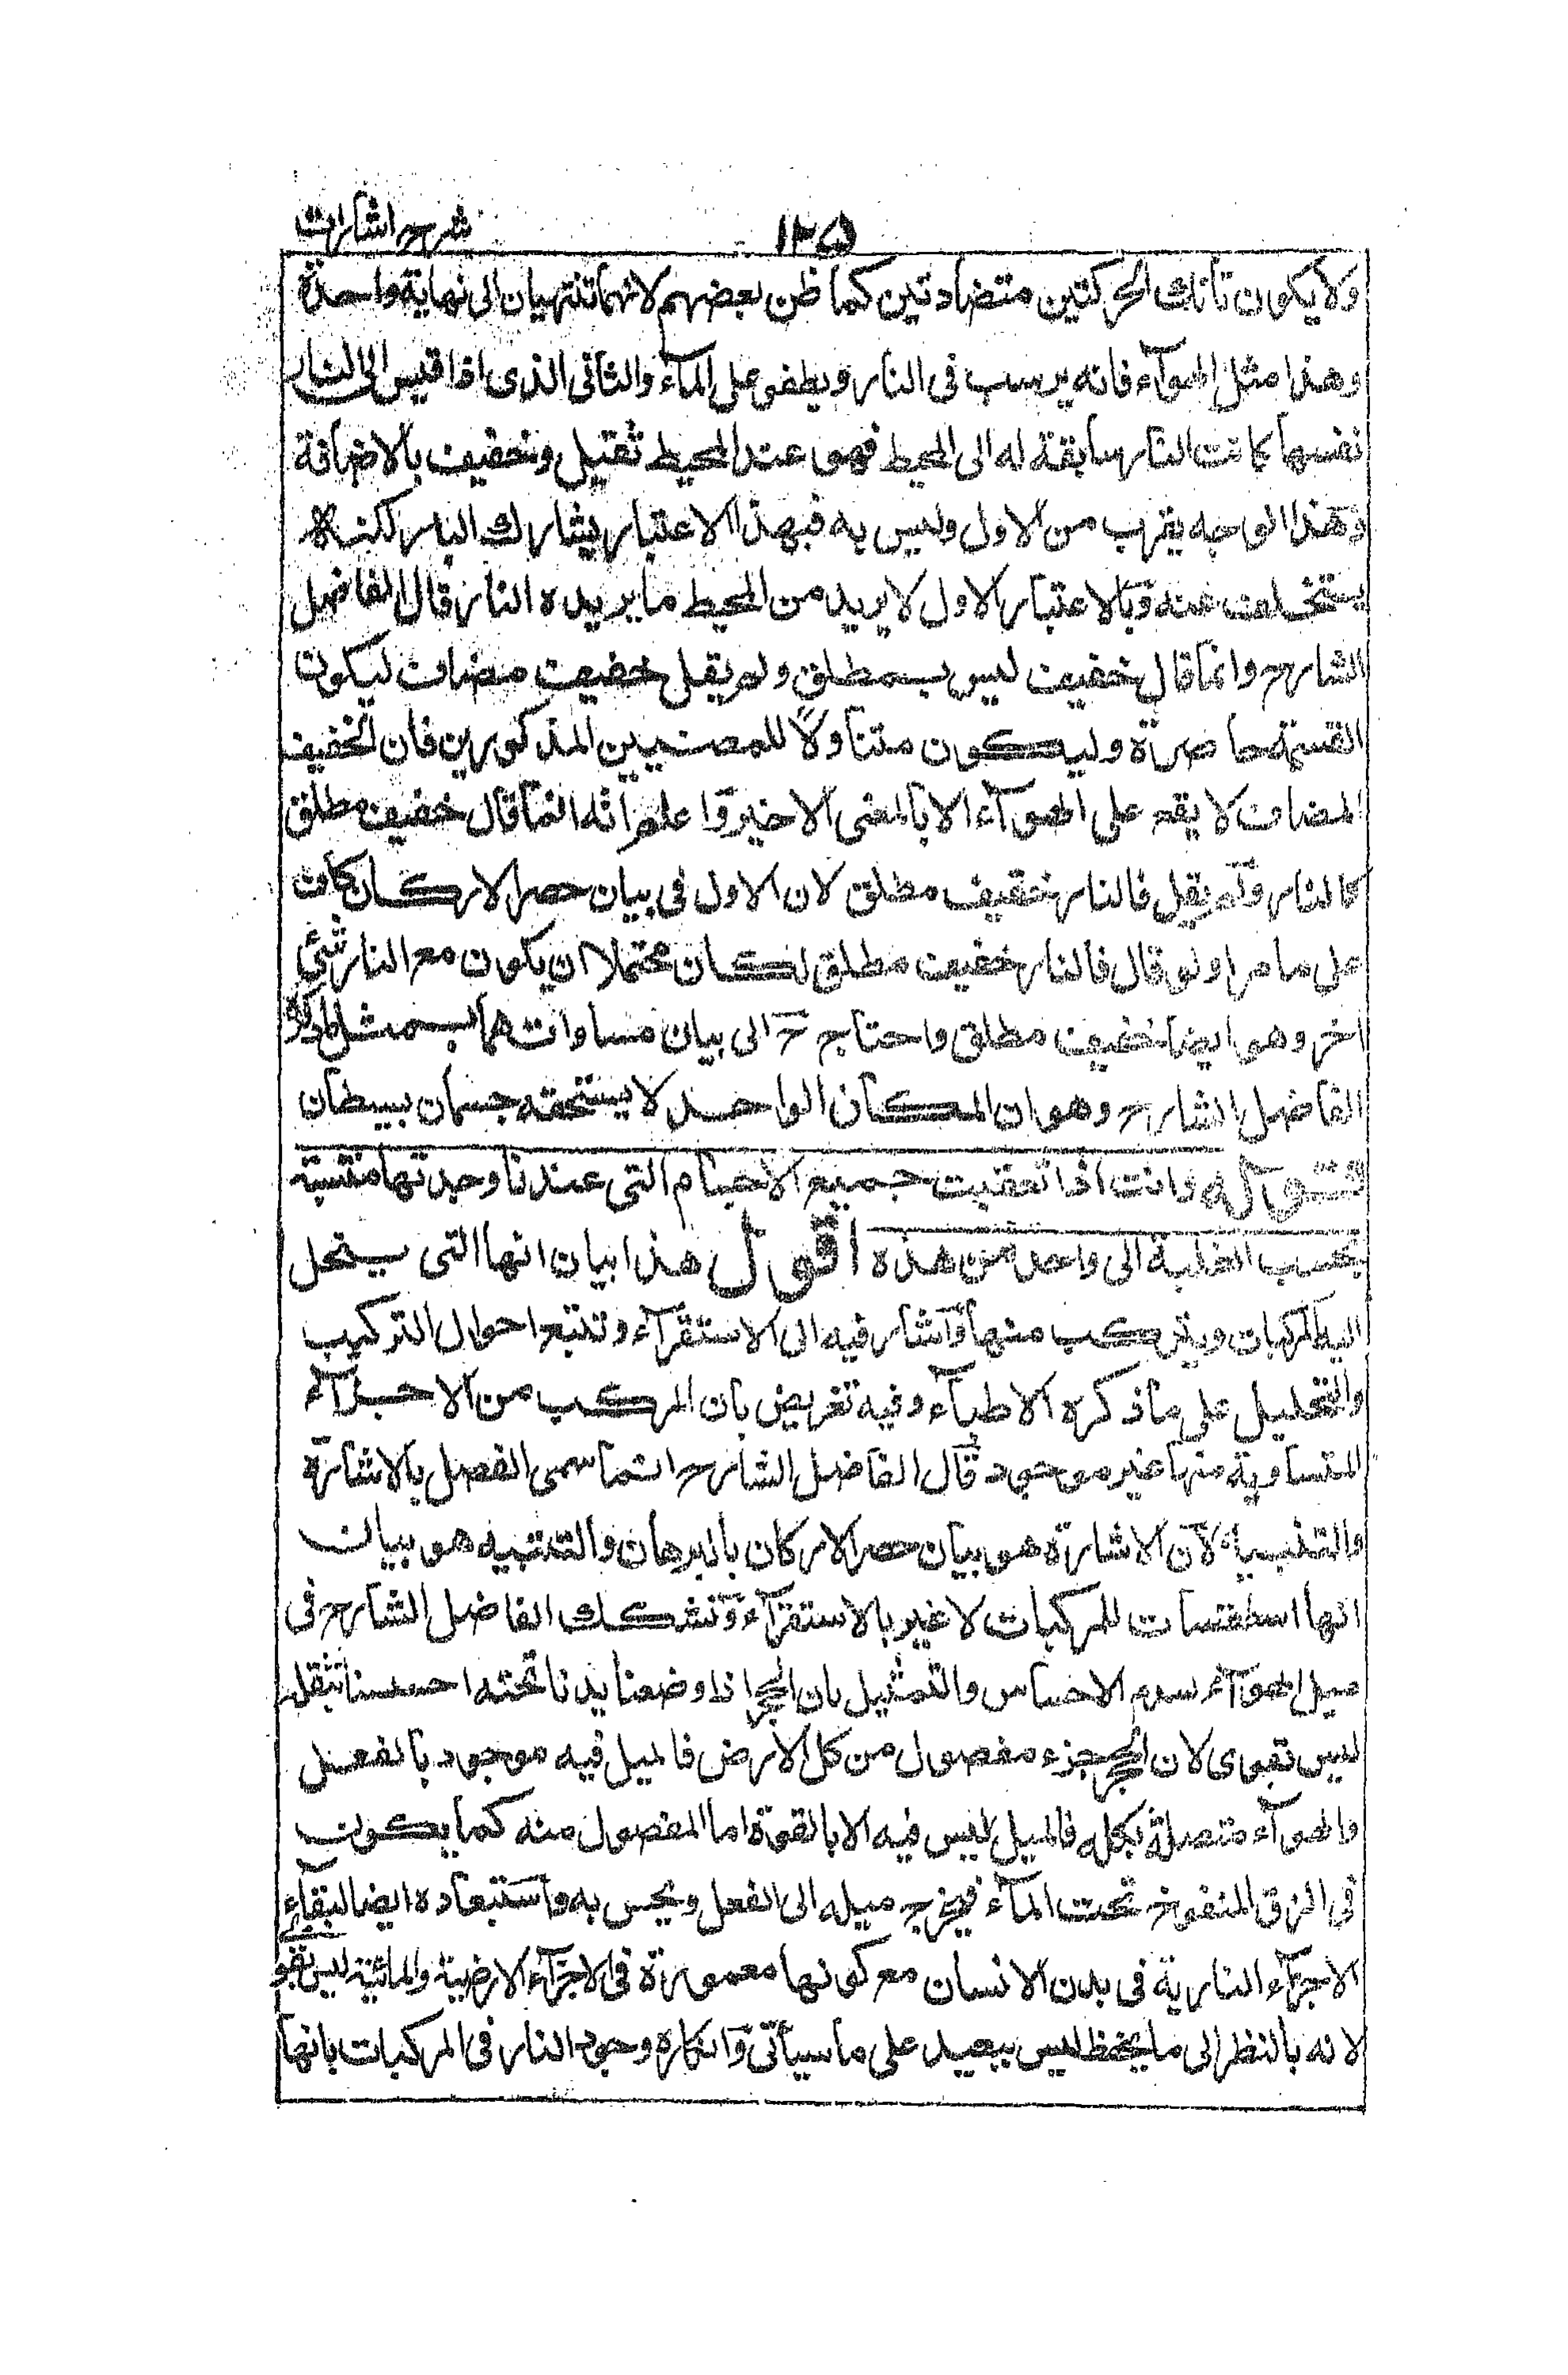 شرح اشارات
١٣٥
ولا يكون تانك الحركتين متضادتين كما ظن بعضهم لانهما تنتهيان الى نهاية واحدة
وهذا مثل الهوآء فانه يرسب فى النار ويطفو على المآء والثانى الذى اذا قيس الى النار
نفسها كانت النار سابقة له الى المحيط فهو عند المحيط ثقيل وخفيف بالاضافة
وهذا الوجه يقرب من الاول وليس به فبهذا الاعتبار يشارك النار لكنه
يتخلف عنه وبالاعتبار الاول لا يريد من المحيط ما يريده النار قال الفاضل
الشارح وانما قال خفيف ليس بمطلق ولم يقل خفيف مضاف ليكون
القسمة حاصرة وليكون متناولا للمعنيين المذكورين فان الخفيف
المضاف لا يقع على الهوآء الا بالمعنى الاخير واعلم انه انما قال خفيف مطلق
كالنار ولم يقل فالنار خفيف مطلق لان الاول فى بيان حصر الاركان كاف
على ما مر او لو قال فالنار خفيف مطلق لكان محتملا ان يكون مع النار شئ
اخر وهو ايضا خفيف مطلق واحتاج ح الى بيان مساواتهما بمثل ما ذكره
الفاضل الشارح وهو ان المكان الواحد لا يستحقه جسمان بسيطان
قوله وانت اذا تعقبت جميع الاجسام التى عندنا وجدتها منتسبة
بحسب الغلبة الى واحد من هذه اقول هذا بيان انها التى ينحل
اليها المركبات ويتركب منها واشار فيه الى الاستقرآء وتتبع احوال التركيب
والتحليل على ما ذكره الاطبآء وفيه تعريض بان المركب من الاجزآء
المتساوية منها غير موجود قال الفاضل الشارح انما سمى الفصل بالاشارة
والتنبيه لان الاشارة هو بيان حصر الاركان بالبرهان والتنبيه هو بيان
انها اسطقسات للمركبات لا غير بالاستقرآء وتشكك الفاضل الشارح فى
ميل الهوآء بعدم الاحساس والتمثيل بان الحجر اذا وضعنا يدنا تحته احسسنا بثقله
ليس بقوى لان الحجر جزء مفصول من كل الارض فالميل فيه موجود بالفعل
والهوآء متصلة بكله فالميل ليس فيه الا بالقوة اما المفصول منه كما يكون
فى الزق المنفوخ تحت المآء فيخرج ميله الى الفعل ويحس به واستبعاده ايضا لبقآء
الاجزآء النارية فى بدن الانسان مع كونها معمورة فى الاجزآء الارضية والمائية ليس بقوى
لانه بالنظر الى ما يحفظ ليس ببعيد على ما سيأتى وانكاره وجود النار فى المركبات بانها